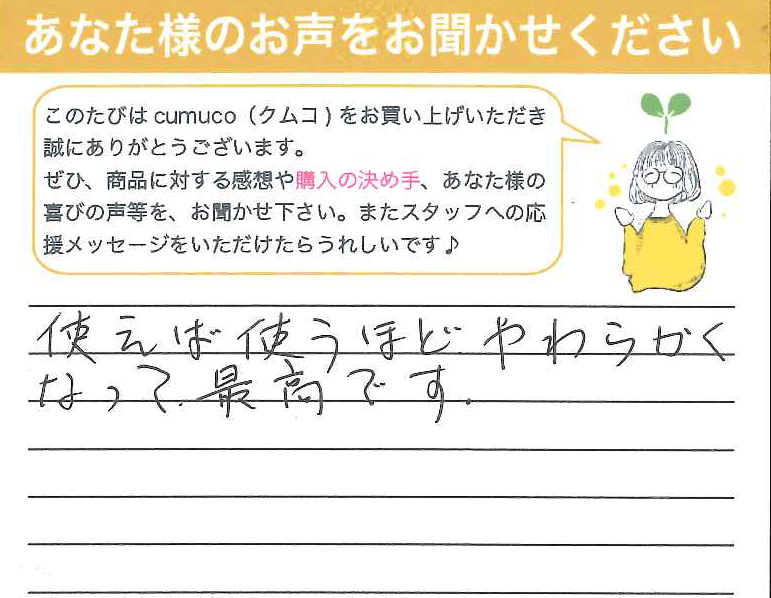 あなた様のお声をお聞かせください
このたびは cumuco（クムコ）をお買い上げいただき
誠にありがとうございます。
ぜひ、商品に対する感想や購入の決め手、あなた様の
喜びの声等を、お聞かせ下さい。またスタッフへの応
援メッセージをいただけたらうれしいです♪
使えば使うほどやわらかく
なって最高です.